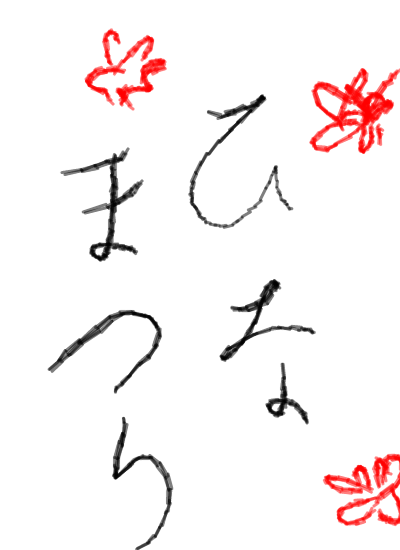 ひな
まつり